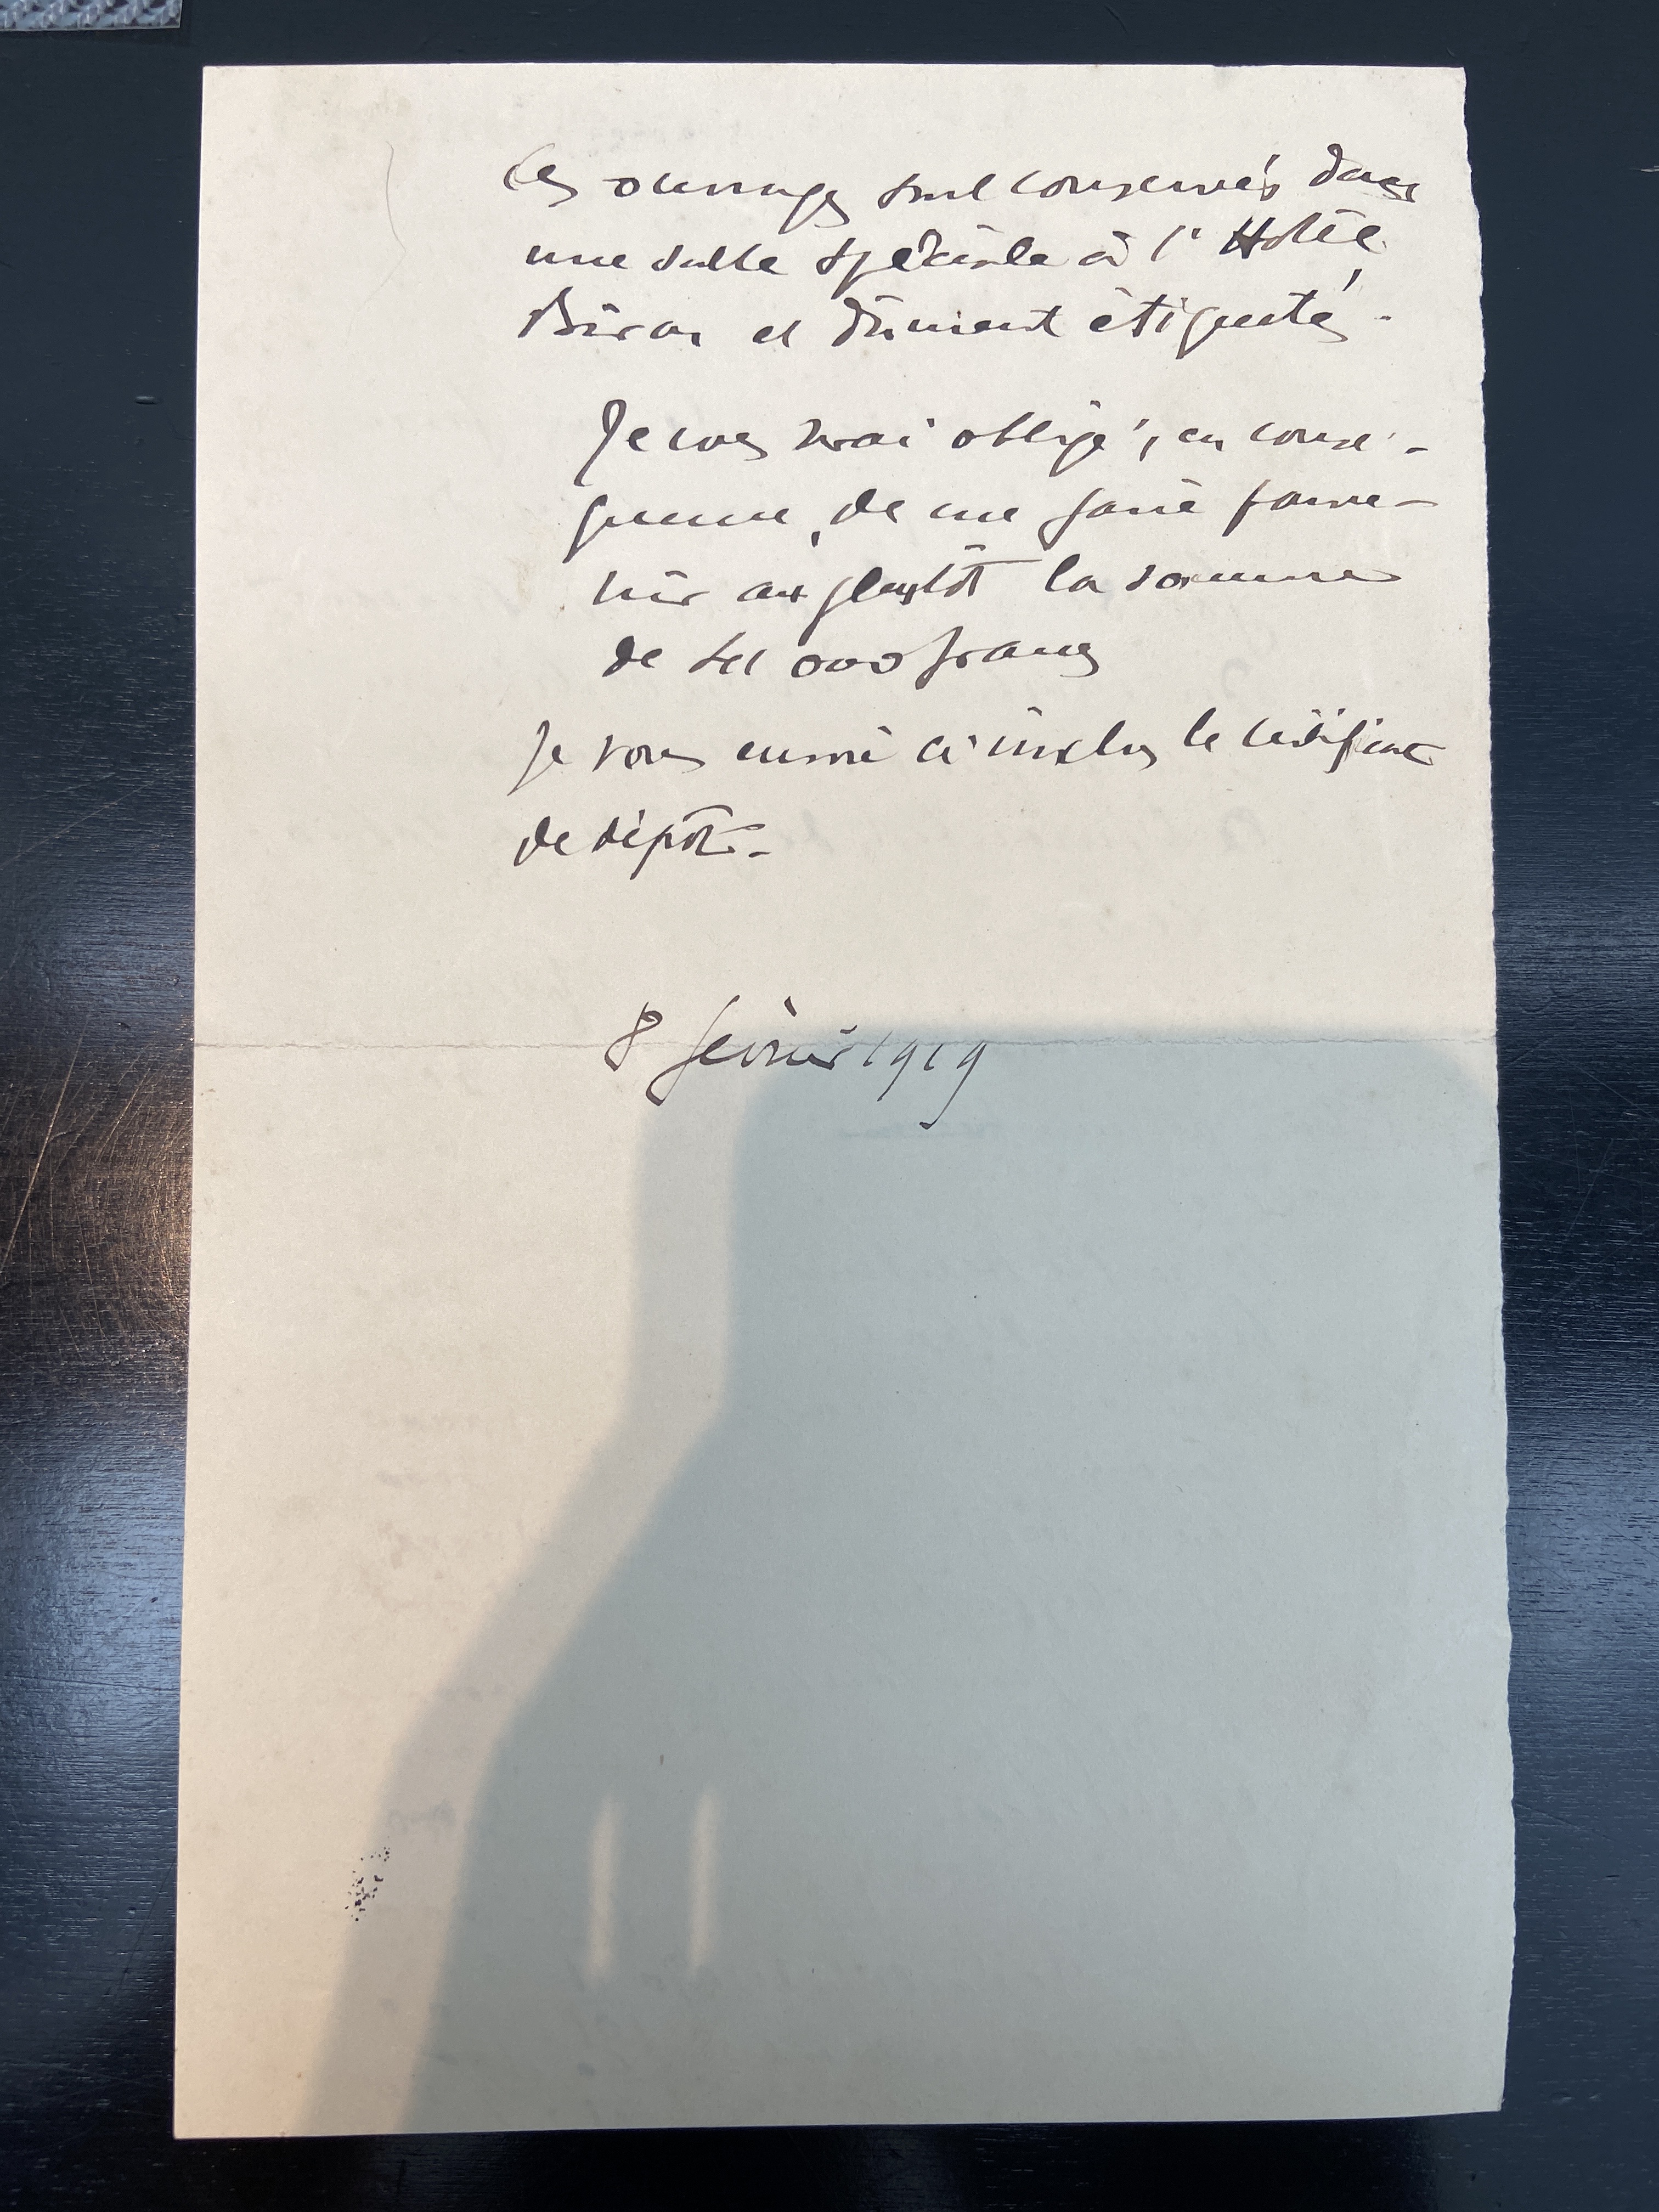 Ces ouvrages sont conservés dans
une salle spéciale à l'Hôtel
Biron et dûment étiquetés.
Je vous serai obligé, en consé-
quence, de me faire parve-
nir au plus tôt la somme
de 000 francs
Je vous envoie ci inclus le certificat
de dépôt.
8 février 1919